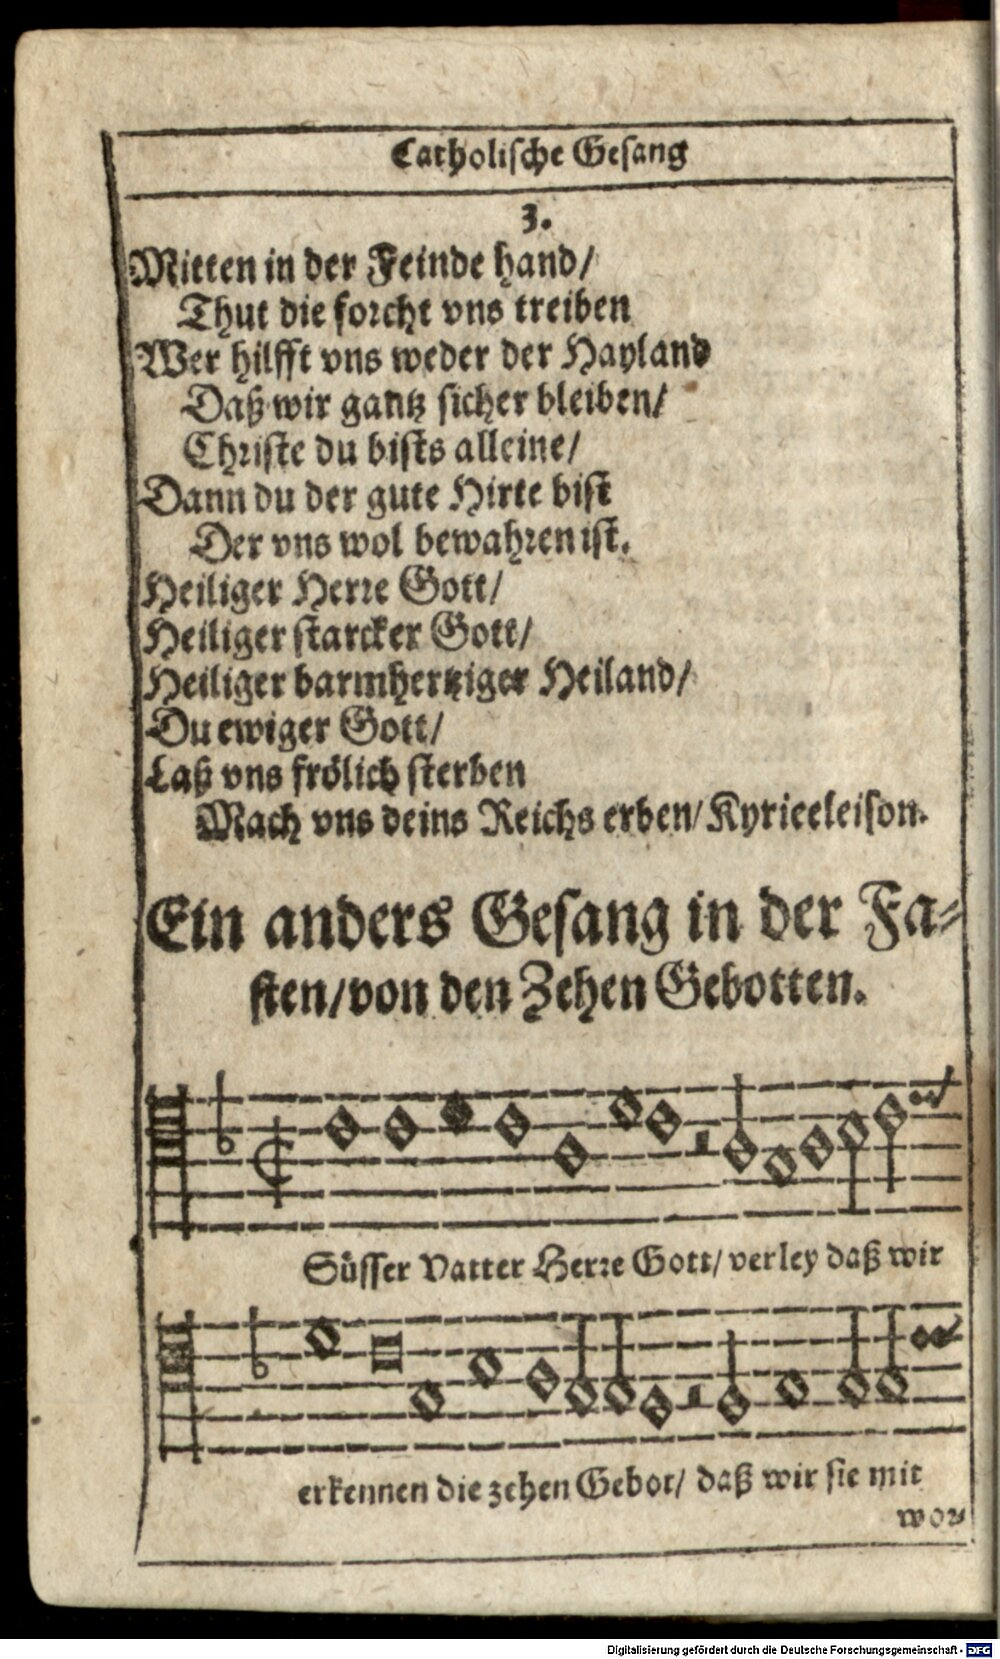 Catholische Gesang
3.
Mitten in der Feinde hand/
Thut die forcht vns treiben
Wer hilfft vns weder der Hayland
Daß wir gantz sicher bleiben/
Christe du bists alleine/
Dann du der gute Hirte bist
Der vns wol bewahren ist.
Heiliger Herre Gott/
Heiliger starcker Gott/
Heiliger barmhertziger Heiland/
Du ewiger Gott/
Laß vns frölich sterben
Mach vns deins Reichs erben/ Kyrieeleison.
Ein anders Gesang in der Fa-
sten/von den Zehen Gebotten.
Süsser Vatter Herre Gott/ verley daß wir
erkennen die zehen Gebot/ daß wir sie mit
wor-
Digitalisierung gefördert durch die Deutsche Forschungsgemeinschaft - DFG